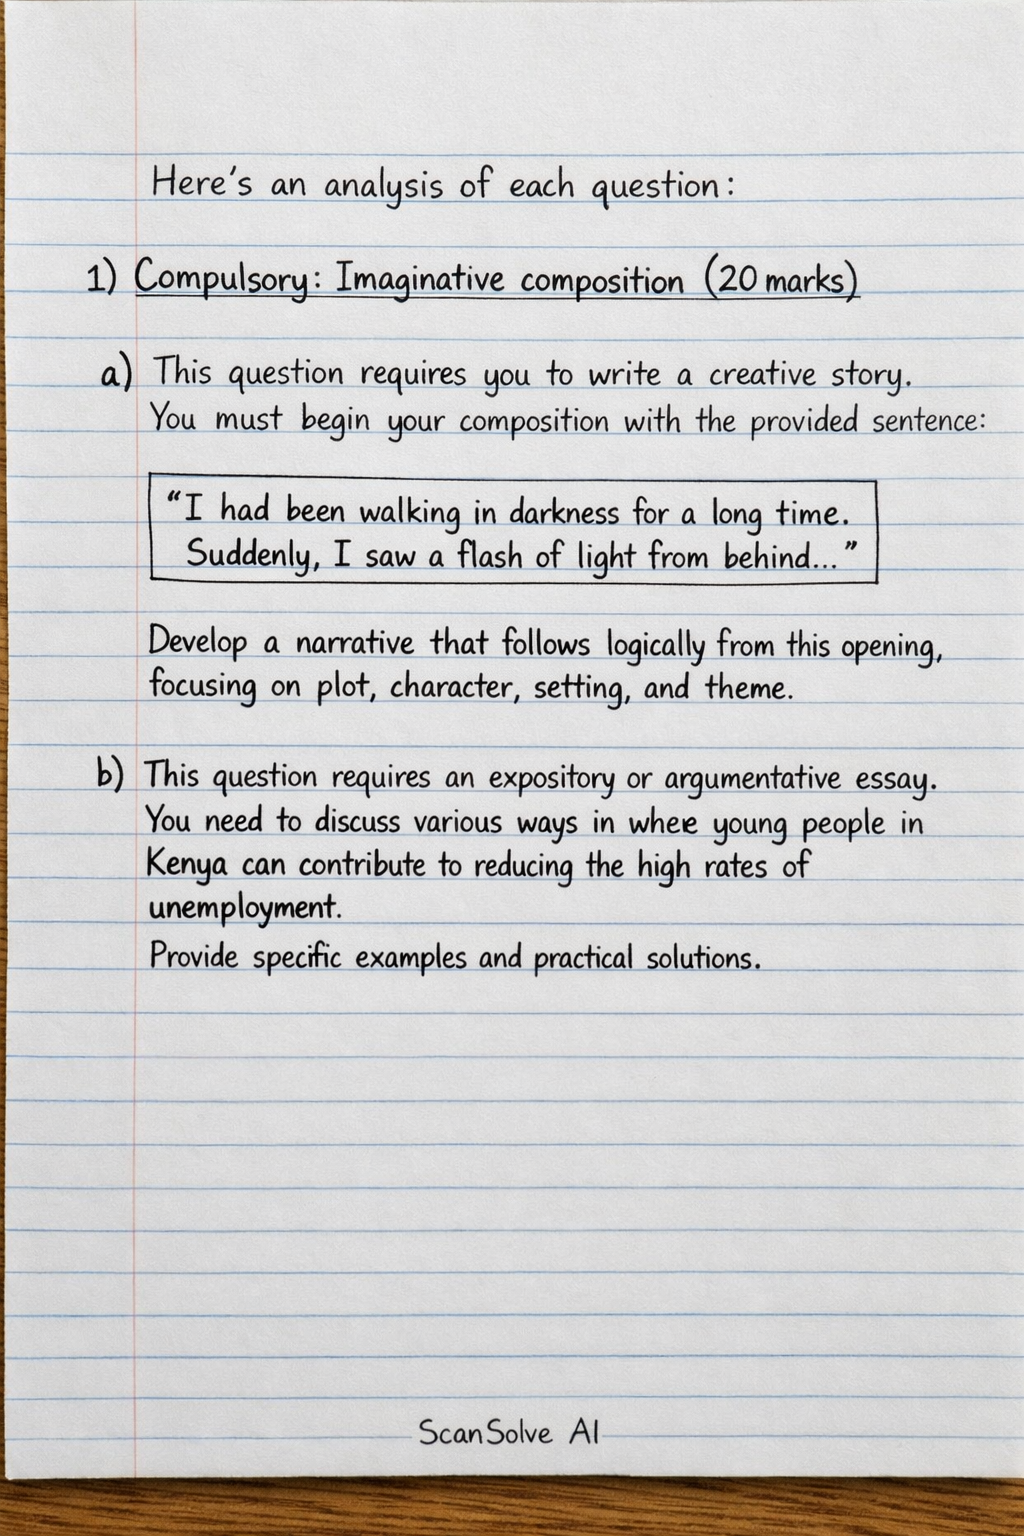 Here's an analysis of each question:
1) Compulsory: Imaginative composition (20 marks)
a) This question requires you to write a creative story.
You must begin your composition with the provided sentence:
"I had been walking in darkness for a long time.
Suddenly, I saw a flash of light from behind..."
Develop a narrative that follows logically from this opening,
focusing on plot, character, setting, and theme.
b) This question requires an expository or argumentative essay.
You need to discuss various ways in where young people in
Kenya can contribute to reducing the high rates of
unemployment.
Provide specific examples and practical solutions.
ScanSolve AI